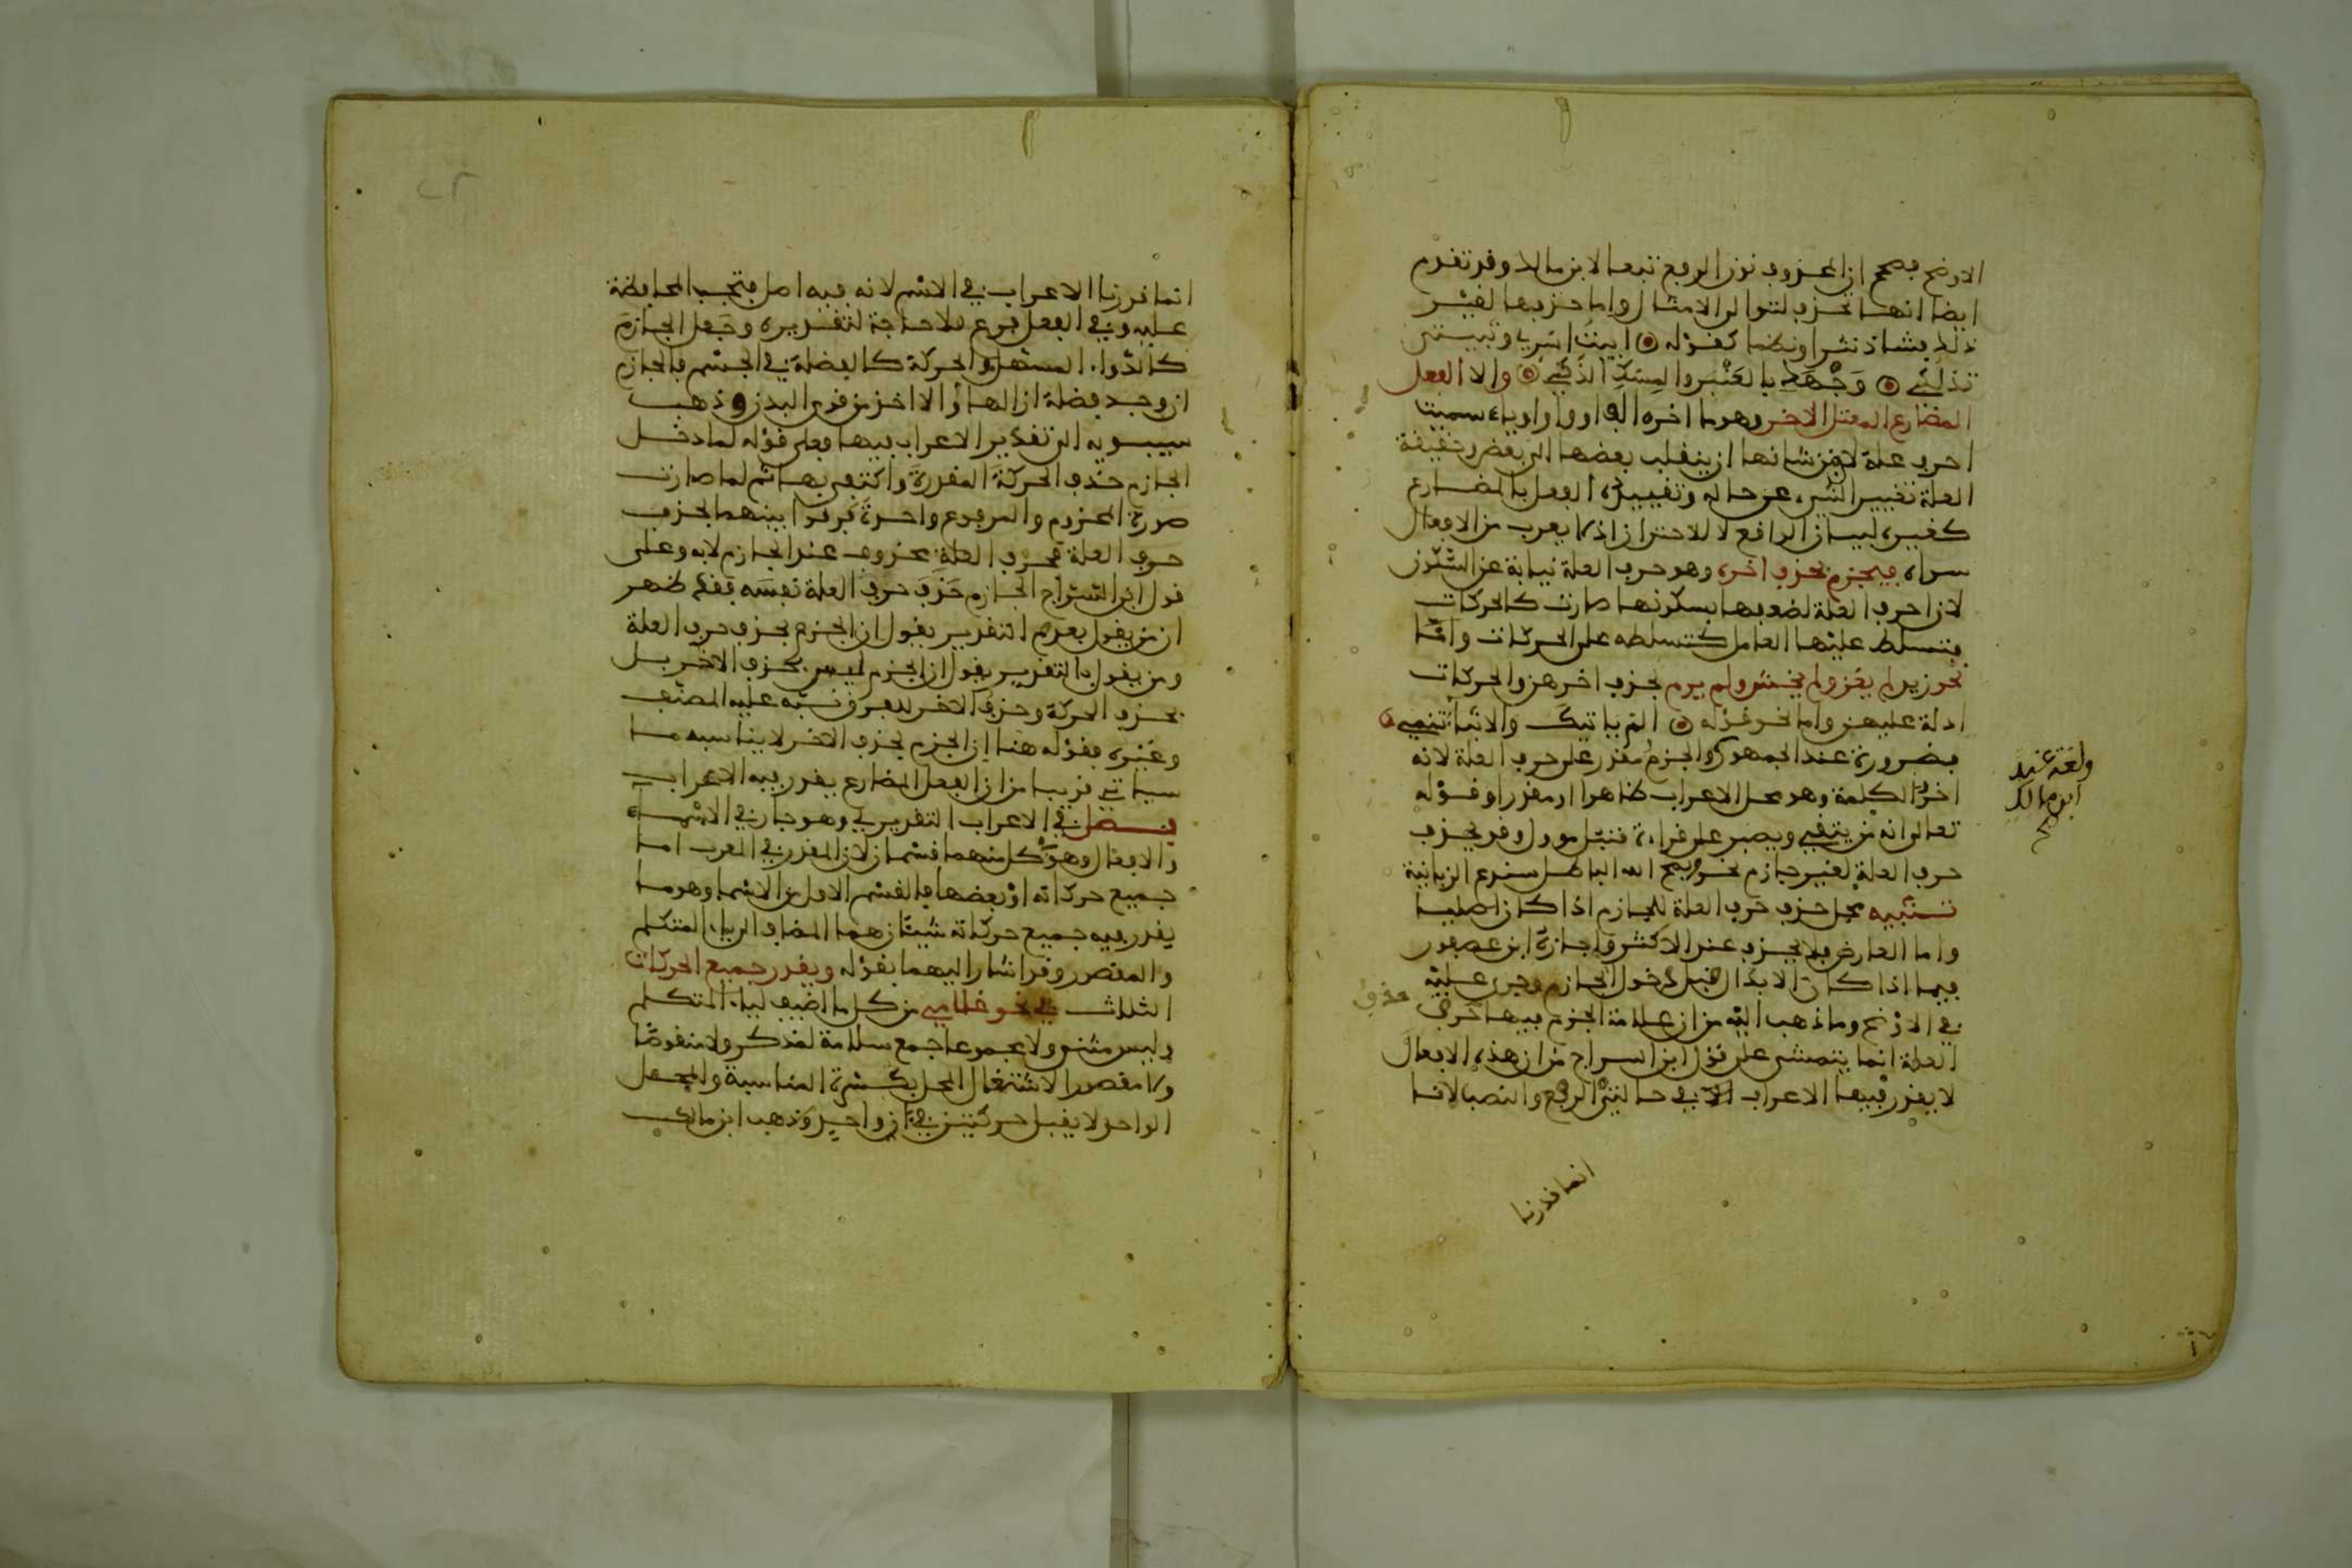 الاوضح فصحح ان المحذوف نون الرفع تبعا لابن مالك وقد تقدم
ايضا انها تحذف لتوالي الامثال واما حذفها لغير
ذلك فشاذ نثرا ونظما كقوله ابيت اسري وتبيتي
تدلكي وجهك بالعنبر والمسك الذكي والا الفعل
المضارع المعتل الاخر وهو ما اخره الف او واو او ياء سميت
احرف علة لان من شانها ان ينقلب بعضها الى بعض وحقيقة
العلة تغيير الشيء عن حاله وتقييده الفعل بالمضارع
كغيره لبيان الواقع لا للاحتراز اذ لا يعرب من الافعال
سواه فيجزم بحذف اخره وهو حرف العلة نيابة عن السكون
لان احرف العلة لضعفها بسكونها صارت كالحركات
فتسلط عليها العامل كتسلطه على الحركات وانما
نحو زيد لم يغز ولم يخش ولم يرم بحذف اخرهن والحركات
ادلة عليهن واما نحو قوله الم ياتيك والانباء تنمي
فضرورة عند الجمهور والجزم مقدر على حرف العلة لانه
ولغة عند
ابن مالك
صح
اخر الكلمة وهو محل الاعراب ظاهرا او مقدرا وقوله
تعالى انه من يتقي ويصبر على قراءة قنبل مؤول وقد يحذف
حرف العلة لغير جازم نحو ويمح الله الباطل سندع الزبانية
تنبيه محل حذف حرف العلة للجازم اذا كان اصليا
واما العارض فلا يحذف عند الاكثر واجازه ابن عصفور
فيما اذا كان الابدال قبل دخول الجازم وجرى عليه
في الاوضح وما ذهب اليه من ان علامة الجزم فيها حذف حرف
العلة انما يتمشى على قول ابن السراج من ان هذه الافعال
لا يقدر فيها الاعراب الا في حالتي الرفع والنصب لانا
انما قدرنا
انما قدرنا الاعراب في الاسم لانه فيه اصل فتجب المحافظة
عليه وفي الفعل فرع فلا حاجة لتقديره وجعل الجازم
كالدواء المسهل والحركة كالفضلة في الجسم فالجازم
ان وجد فضلة ازالها والا اخذ من قوى البدن وذهب
سيبويه الى تقدير الاعراب فيها فعلى قوله لما دخل
الجازم حذف الحركة المقدرة واكتفى بها ثم لما صارت
صورة المجزوم والمرفوع واحدة فرقوا بينهما بحذف
حرف العلة فحرف العلة محذوف عند الجازم لا به وعلى
قول ابن السراج الجازم حذف حرف العلة نفسه فقد ظهر
ان من يقول بعدم التقدير يقول ان الجزم بحذف حرف العلة
ومن يقول بالتقدير يقول ان الجزم ليس بحذف الاخر بل
بحذف الحركة وحذف الاخر للفرق نبه عليه المصنف
وغيره فقوله هنا ان الجزم بحذف الاخر لا يناسبه ما
سياتي قريبا من ان الفعل المضارع يقدر فيه الاعراب
فصل في الاعراب التقديري وهو جار في الاسماء
والافعال وهو في كل منهما قسمان لان المقدر في المعرب اما
جميع حركاته او بعضها فالقسم الاول من الاسماء وهو ما
يقدر فيه جميع حركاته شيئان هما المضاف الى ياء المتكلم
والمقصور وقد اشار اليهما بقوله ويقدر جميع الحركات
الثلاث في نحو غلامي من كل ما اضيف لياء المتكلم
وليس مثنى ولا مجموعا جمع سلامة لمذكر ولا منقوصا
ولا مقصورا لاشتغال المحل بكسرة المناسبة والمحل
الواحد لا يقبل حركتين في ان واحد وذهب ابن مالك